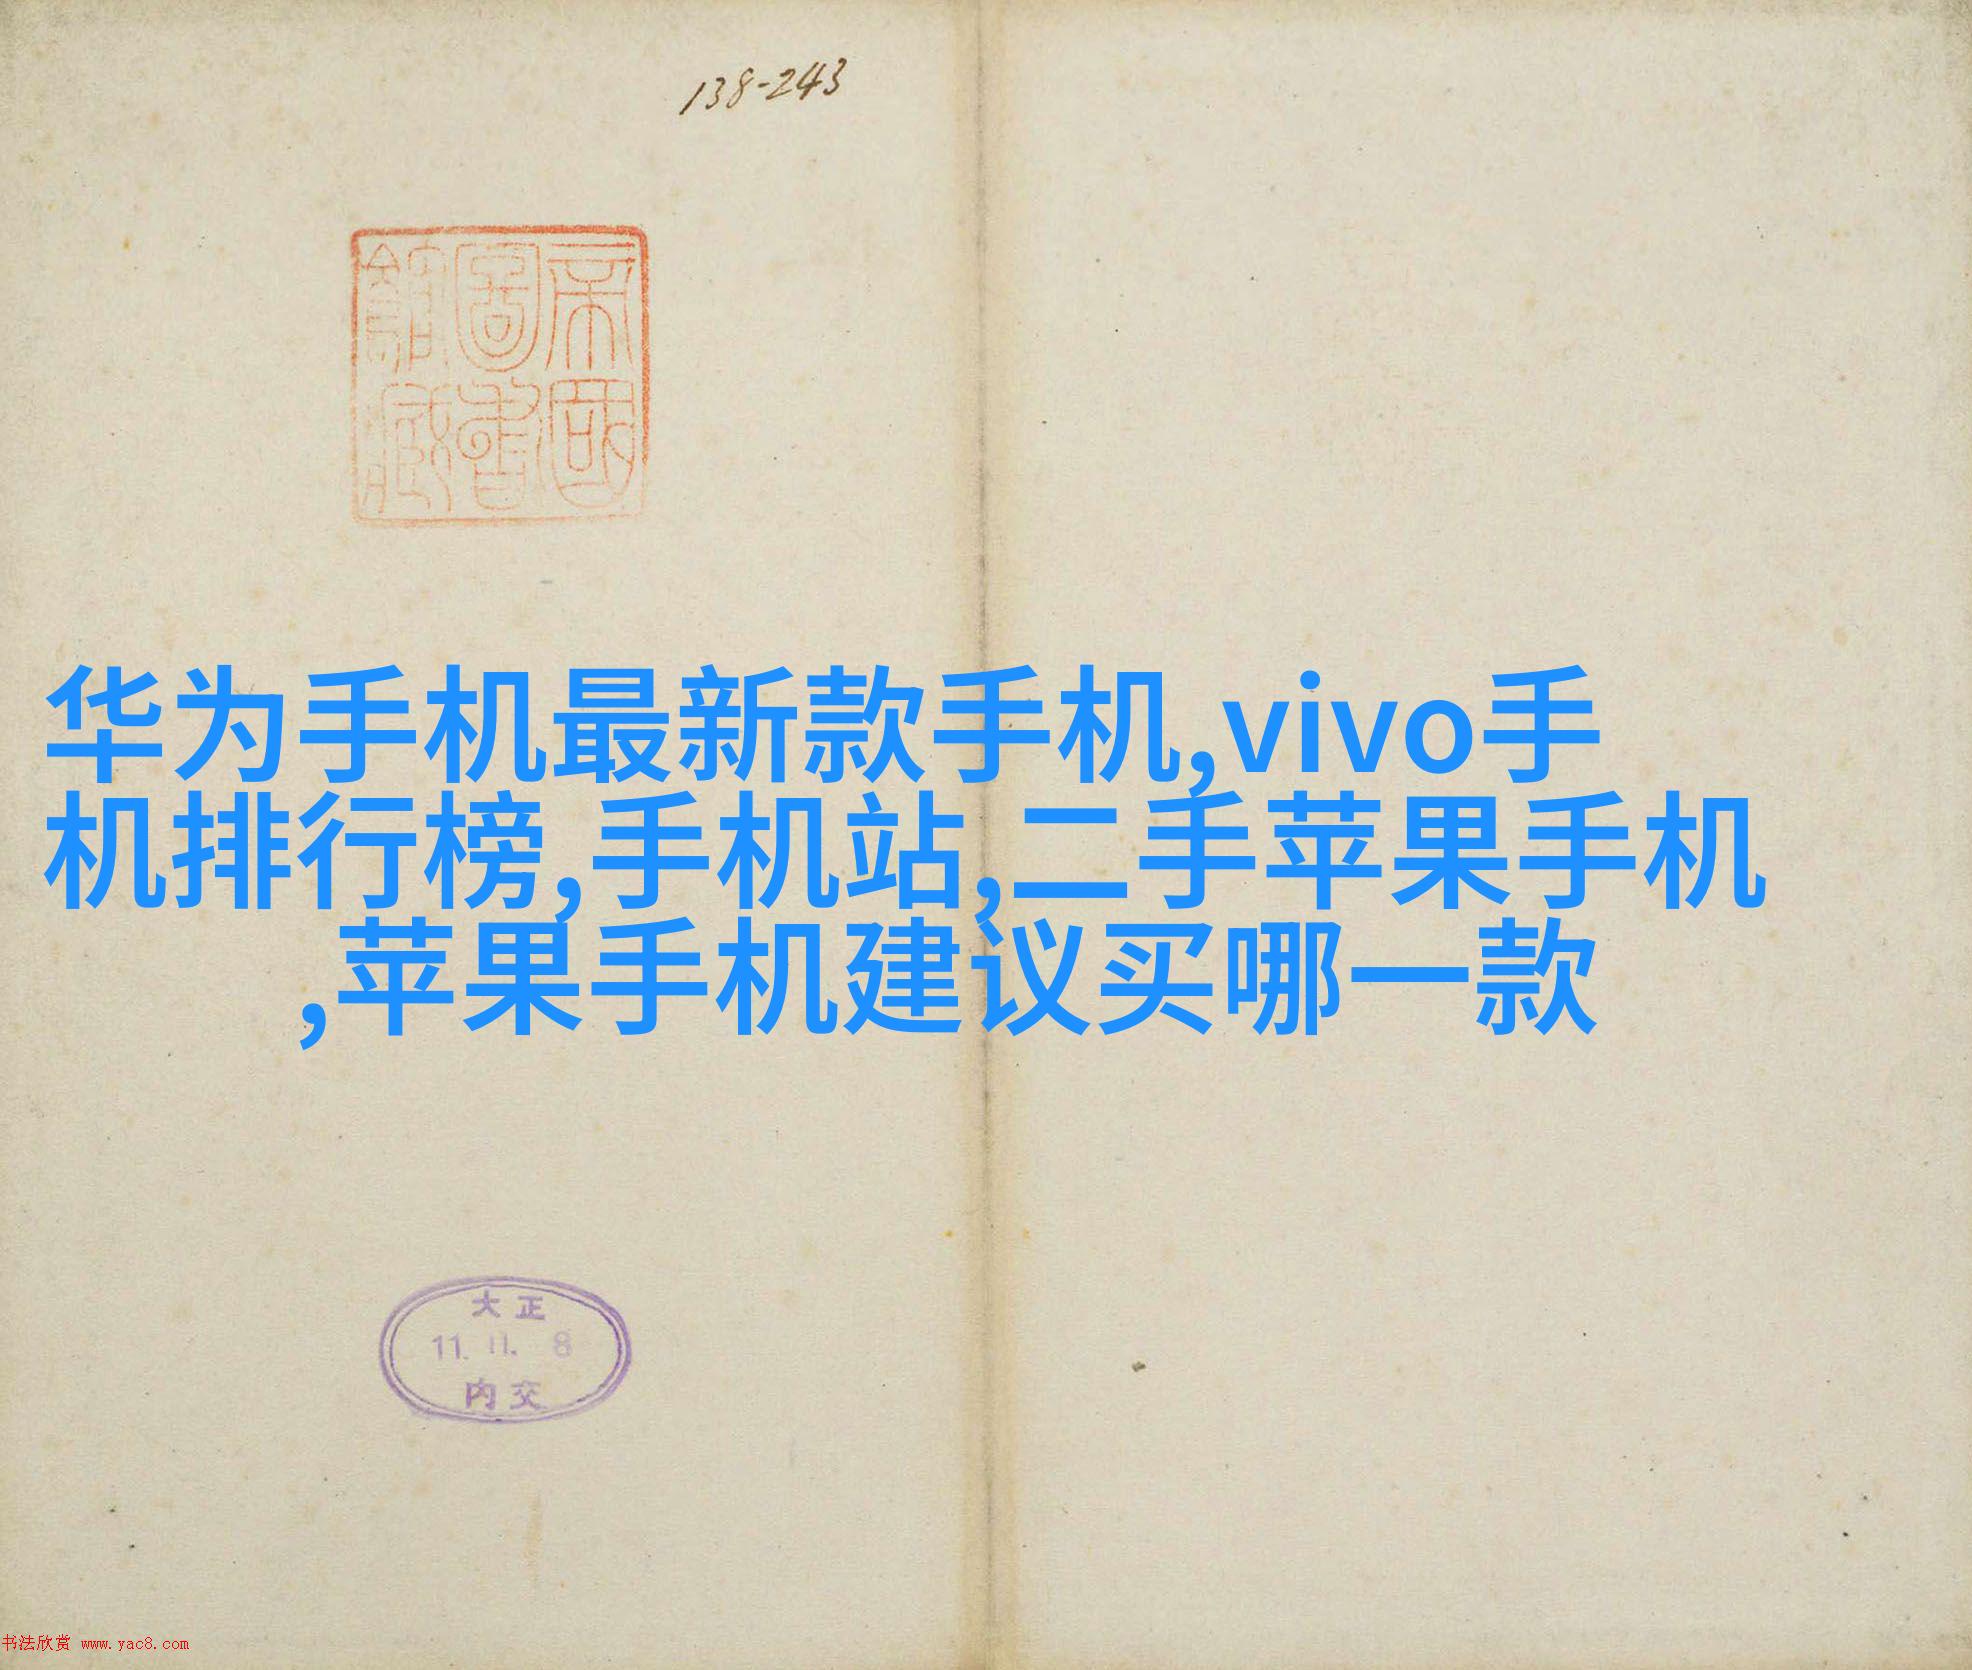 138-243
帝國
圖書
館藏
华为手机最新款手机,vivo手
机排行榜,手机站,二手苹果手机
,苹果手机建议买哪一款
大正
11. 11. 8
内交
书法欣赏 www.yac8.com